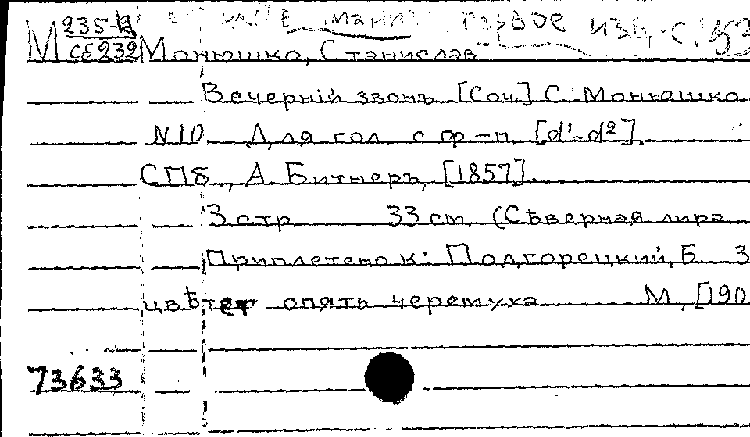 М 235-В
СЕ 232 Монюшко, Станислав
Вечерній звонъ [Соч.] С. Монюшко
N10 Для гол. с ф-п. [d'-d²]
СПб, А. Битнеръ, [1857].
3 стр 33 cm (Сѣверная лира
Приплетено к: Подгорецкий, Б. З
цвѣтет опять черемуха М, [190
73633